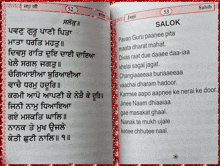 ਸਲੋਕੁ ॥
ਪਵਣੁ ਗੁਰੂ ਪਾਣੀ ਪਿਤਾ
ਮਾਤਾ ਧਰਤਿ ਮਹਤੁ ॥
ਦਿਵਸੁ ਰਾਤਿ ਦੁਇ ਦਾਈ ਦਾਇਆ
ਖੇਲੈ ਸਗਲ ਜਗਤੁ ॥
ਚੰਗਿਆਈਆ ਬੁਰਿਆਈਆ
ਵਾਚੈ ਧਰਮੁ ਹਦੂਰਿ ॥
ਕਰਮੀ ਆਪੋ ਆਪਣੀ ਕੇ ਨੇੜੈ ਕੇ ਦੂਰਿ ॥
ਜਿਨੀ ਨਾਮੁ ਧਿਆਇਆ
ਗਏ ਮਸਕਤਿ ਘਾਲਿ ॥
ਨਾਨਕ ਤੇ ਮੁਖ ਉਜਲੇ
ਕੇਤੀ ਛੁਟੀ ਨਾਲਿ ॥੧॥
SALOK
Pavan Guru paanee pita
maata dharat mahat.
Divas raat due daaee daa-iaa
khelai sagal jagat.
Changiaaeeaa buriaaeeaa
vaachai dharam hadoor.
Karmee aapo aapnee ke nerai ke door.
Jinee Naam dhiaaiaa
gae masakat ghaal.
Nanak te mukh ujale
ketee chhutee naal.